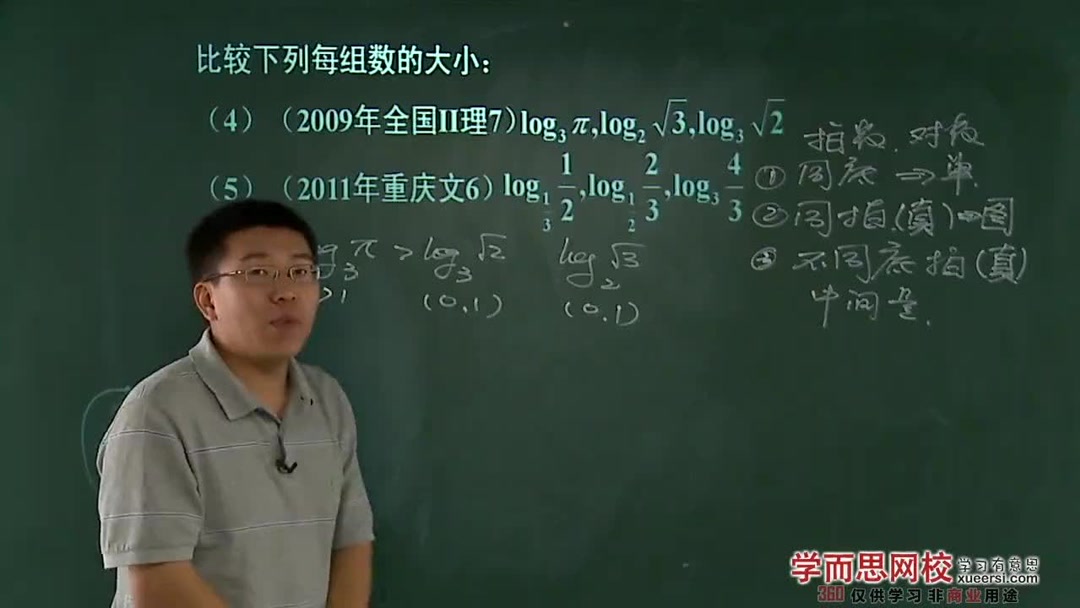 比较下列每组数的大小：
（4）（2009年全国II理7）log₃π,log₂√3,log₃√2
（5）（2011年重庆文6）log_{1/3} 1/2,log_{1/2} 2/3,log₃ 4/3
log₃π > log₃√2 log₂√3
>1 (0,1) (0,1)
指数、对数
① 同底 → 单.
② 同指(真)→图
③ 不同底指(真)
中间量.
学而思网校 学习有意思
xueersi.com
360 仅供学习 非商业用途